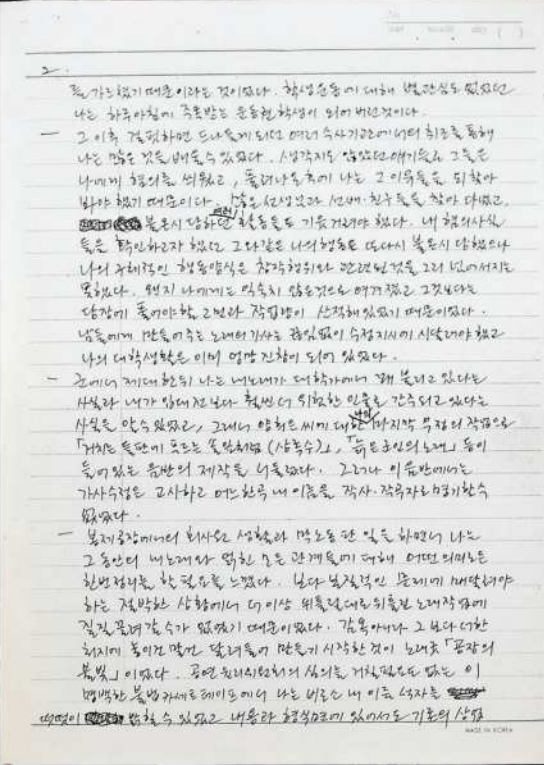 2.
를 가르쳤기 때문이라는 것이었다. 학생운동에 대해 별관심도 없었던
나는 하루아침에 주목받는 운동권학생이 되어 버린것이다.
— 그 이후 걸핏하면 드나들게 되던 여러 수사기관에서의 취조를 통해
나는 많은 것을 배울수 있었다. 생각지도 않았던 얘기들로 그들은
나에게 혐의를 씌웠고, 풀려나온후에 나는 그 이유들을 되찾아
봐야 했기 때문이다. 많은 선생님과 선배·친구들을 찾아 다녔고,
불온시 당하던 여러 활동들도 기웃거려야 했다. 내 혐의사실
들을 확인하고자 했던 그와같은 나의행동도 또다시 불온시 당했으나
나의 구체적인 행동양식은 창작행위와 관련된것을 그리 넘어서지는
못했다. 왠지 나에게는 익숙치 않은것으로 여겨졌고 그것보다는
당장에 풀어야할 고민과 작업량이 산적해있었기 때문이었다.
남들에게 만들어주는 노래의가사는 끊임없이 수정지시에 시달려야 했고
나의 대학생활은 이미 엉망진창이 되어 있었다.
— 군에서 제대한뒤 나는 내노래가 대학가에서 꽤 불리고 있다는
사실과 내가 입대전보다 훨씬 더 위험한 인물로 간주되고 있다는
사실을 알수있었고, 그래서 양희은씨에 대한 나의 마지막 우정의 작업으로
「거치른 들판에 푸르른 솔잎처럼 (상록수)」, 「늙은군인의 노래」 등이
들어있는 음반의 제작을 서둘렀다. 그러나 이음반에서는
가사수정은 고사하고 어느한곡 내 이름을 작사·작곡자로 명기할수
없었다.
— 봉제공장에서의 회사원 생활과 막노동판 일을 하면서 나는
그동안의 내노래와 얽힌 모든 관계들에 대해 어떤 의미로든
한번정리를 할 필요를 느꼈다. 보다 본질적인 문제에 매달려야
하는 절박한 상황에서 더이상 뒤틀린대로 뒤틀린 노래작업에
질질 끌려갈수가 없었기 때문이었다. 감옥아니라 그보다 더한
처지에 놓이건 말건 달려들어 만들기 시작한것이 노래굿 「공장의
불빛」이었다. 공연윤리위원회의 심의를 거칠필요도 없는 이
명백한 불법카세트테이프에서 나는 비로소 내 이름 석자를
떳떳이 밝힐수 있었고 내용과 형식면에 있어서도 기존의 상업
MADE IN KOREA